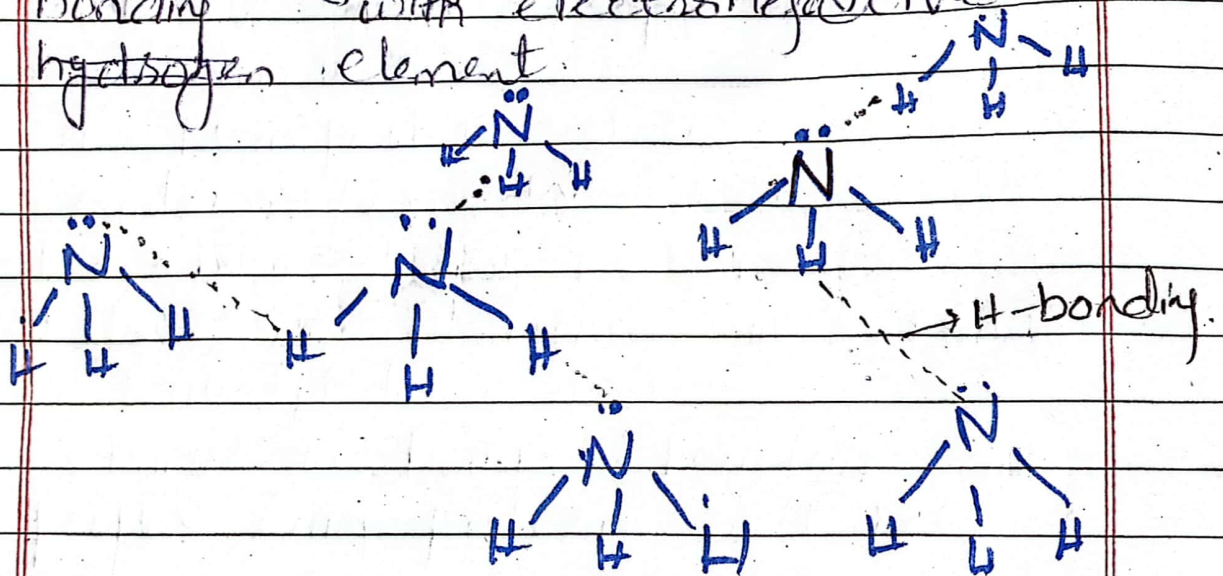 bonding with electronegative
hydrogen element.
N
H H H
N
H H H
N
H H H
N
H H H
N
H H H
N
H H H
→ H-bonding.
N
H H H